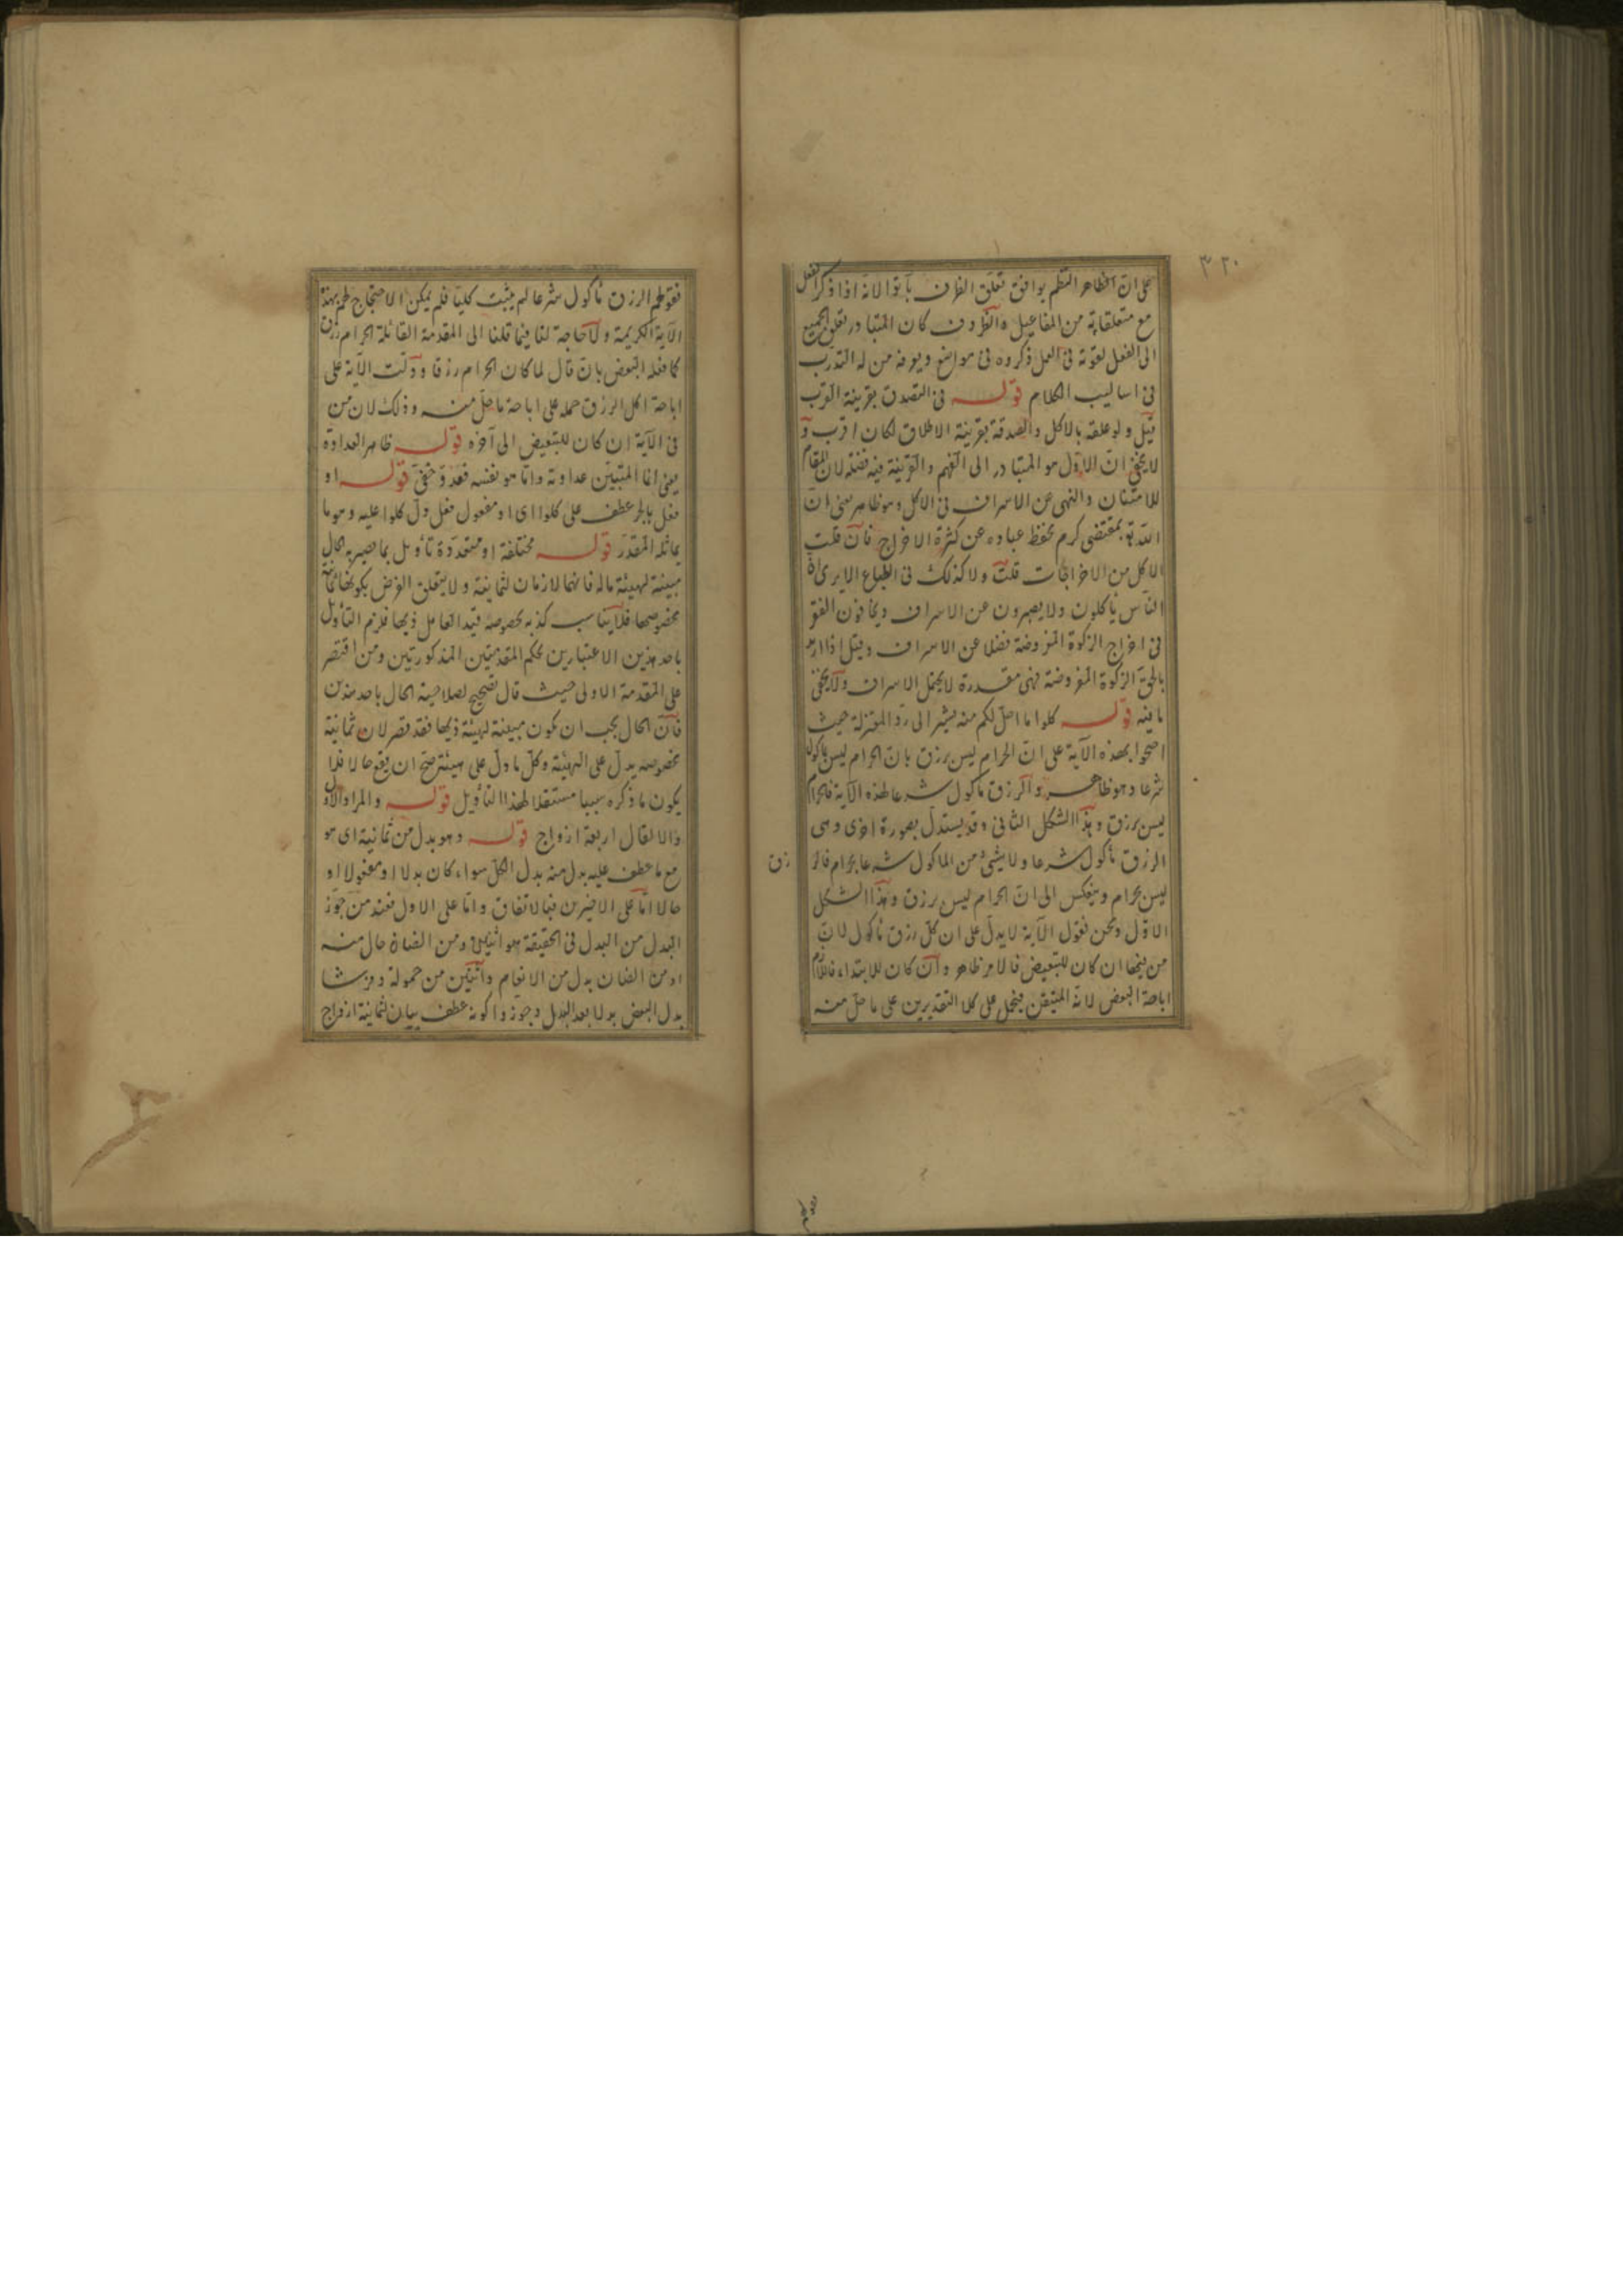 ٣٢٠
على ان الظاهر النظم يوافق تعلق الظرف بآتوا لانه اذا ذكر الفعل
مع متعلقاته من المفاعيل والظروف كان المتبادر تعلق الجميع
الى الفعل لقوته فى العمل ذكروه فى مواضع ويعرفه من له التدرب
فى اساليب الكلام قوله فى التصدق بقرينة القرب
قيل ولو علقه بالاكل والصدقة بقرينة الاطلاق لكان اقرب و
لا يخفى ان الاول هو المتبادر الى الفهم والقرينة فيه لان المقام
للامتنان والنهى عن الاسراف فى الاكل وهو ظاهر يعنى ان
الله تع بمقتضى كرم يحفظ عباده عن كثرة الاخراج فان قلت
الاكل من الاخراجات قلت ولا كذلك فى الطباع الا يرى ان
الناس ياكلون ولا يصبرون عن الاسراف ويخافون الفقر
فى اخراج الزكوة المفروضة فضلا عن الاسراف وقيل اذا اريد
بالحق الزكوة المفروضة فهى مقدرة لا يحتمل الاسراف ولا يخفى
ما فيه قوله كلوا ما احل لكم منه يشير الى رد المعتزلة حيث
احتجوا بهذه الآية على ان الحرام ليس برزق بان الحرام ليس ماكولا
شرعا وهو ظاهر والرزق ماكول شرعا لهذه الآية فالحرام
ليس برزق وهذا الشكل الثانى وقد يستدل بصورة اخرى وهى
الرزق ماكول شرعا ولا شئ من الماكول شرعا بحرام فالرزق
ليس بحرام وينعكس الى ان الحرام ليس برزق وهذا الشكل
الاول ونحن نقول الآية لا يدل على ان كل رزق ماكول لان
من فيها ان كان للتبعيض فالامر ظاهر وان كان للابتداء فاللازم
اباحة البعض لانه المتيقن فيحمل على كلا التقديرين على ما حل منه
فقولهم الرزق ماكول شرعا لم يثبت كليا فلم يمكن الاحتجاج لهم بهذه
الآية الكريمة ولا حاجة لنا فيما قلنا الى المقدمة القائلة الحرام رزق
كما فعله البعض بان قال لما كان الحرام رزقا ودلت الآية على
اباحة اكل الرزق حمله على اباحة ما حل منه وذلك لان من
فى الآية ان كان للتبعيض الى آخره قوله ظاهر العداوة
يعنى انما المتبين عداوته واما هو نفسه فعدو خفى قوله او
فعل بالجر عطف على كلوا اى او مفعول فعل دل كلوا عليه وهو ما
يماثله المقدر قوله مختلفة او متعددة تأويل بما يصير به الحال
مبينة لهيئة ما له فانهما لازمان لثمانية ولا يتعلق الغرض بكونها ثمانية
بخصوصها فلا يناسب كذبه بخصوصه قيد العامل ذيها فلزم التأويل
باحد هذين الاعتبارين بحكم المقدمتين المذكورتين ومن اقتصر
على المقدمة الاولى حيث قال تصحيح لصلاحية الحال باحد هذين
فان الحال يجب ان يكون مبينة لهيئة ذيها فقد قصر لان ثمانية
بخصوصه يدل على الهيئة وكل ما دل على هيئة صح ان يقع حالا فلا
يكون ما ذكره سببا مستقلا لهذا التأويل قوله والمراد الاول
والا لقال اربعة ازواج قوله وهو بدل من ثمانية اى هو
مع ما عطف عليه بدل منه بدل الكل سواء كان بدلا او مفعولا او
حالا اما على الاخيرين فبالاتفاق واما على الاول فعند من جوز
البدل من البدل فى الحقيقة هو اثنين ومن الضان حال منه
او من الضان بدل من الانعام واثنين من حمولة وفرشا
بدل البعض بدلا بعد البدل وجوزوا كونه عطف بيان لثمانية ازواج